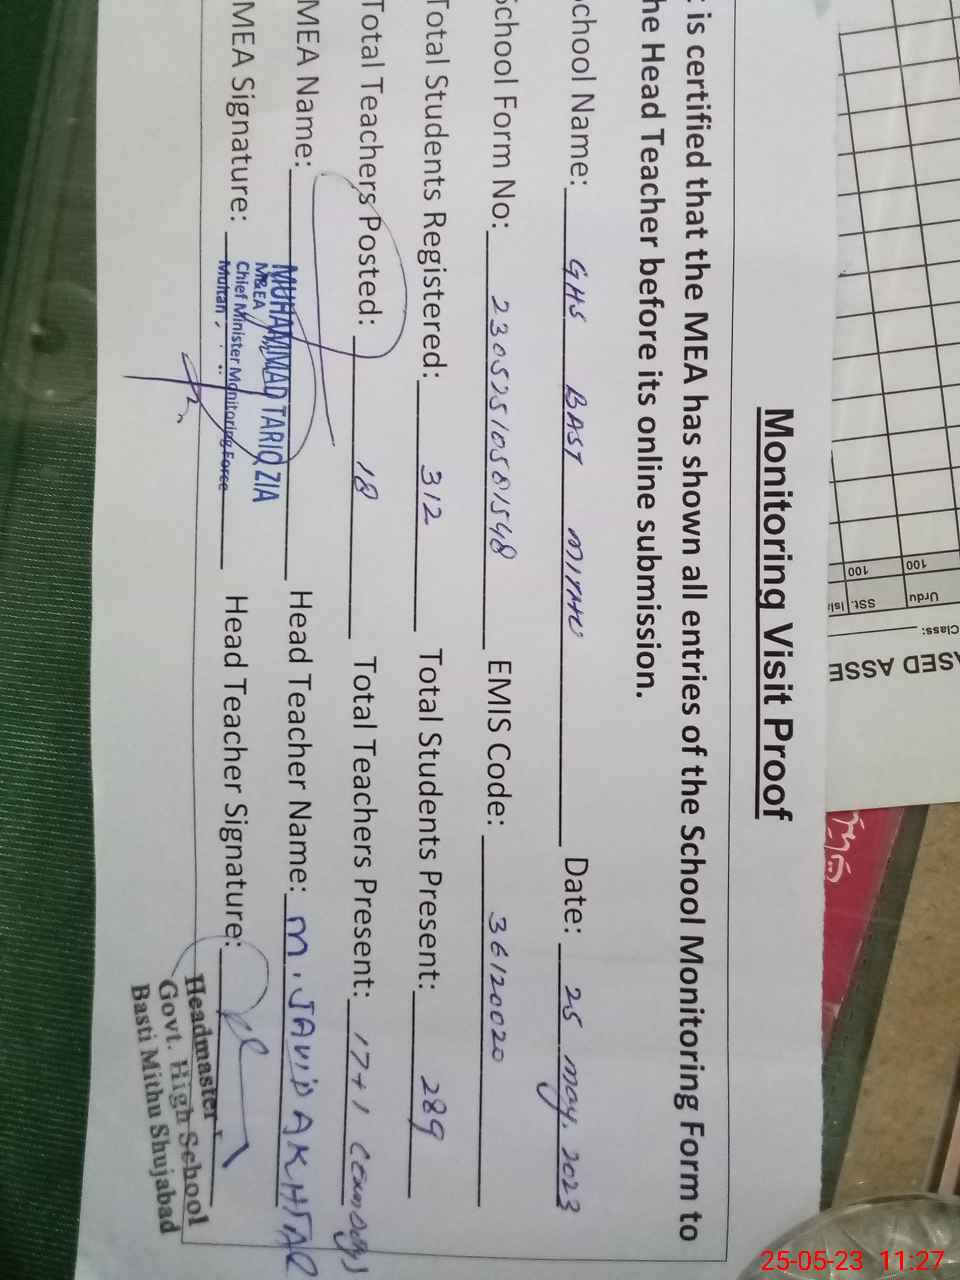 Monitoring Visit Proof
is certified that the MEA has shown all entries of the School Monitoring Form to
he Head Teacher before its online submission.
chool Name: GHS BAST MITHU Date: 25 May, 2023
School Form No: 23052510581548 EMIS Code: 36120020
Total Students Registered: 312 Total Students Present: 289
Total Teachers Posted: 18 Total Teachers Present: 17+1
MEA Name: Head Teacher Name: M. JAVID AKHTAR
MUHAMMAD TARIQ ZIA
M&EA
Chief Minister Monitoring Force
Multan
MEA Signature: Head Teacher Signature:
Headmaster
Govt. High School
Basti Mithu Shujabad
ASED ASSE
Class:
Urdu 100
SSt. 100
Isla
25-05-23 11:27